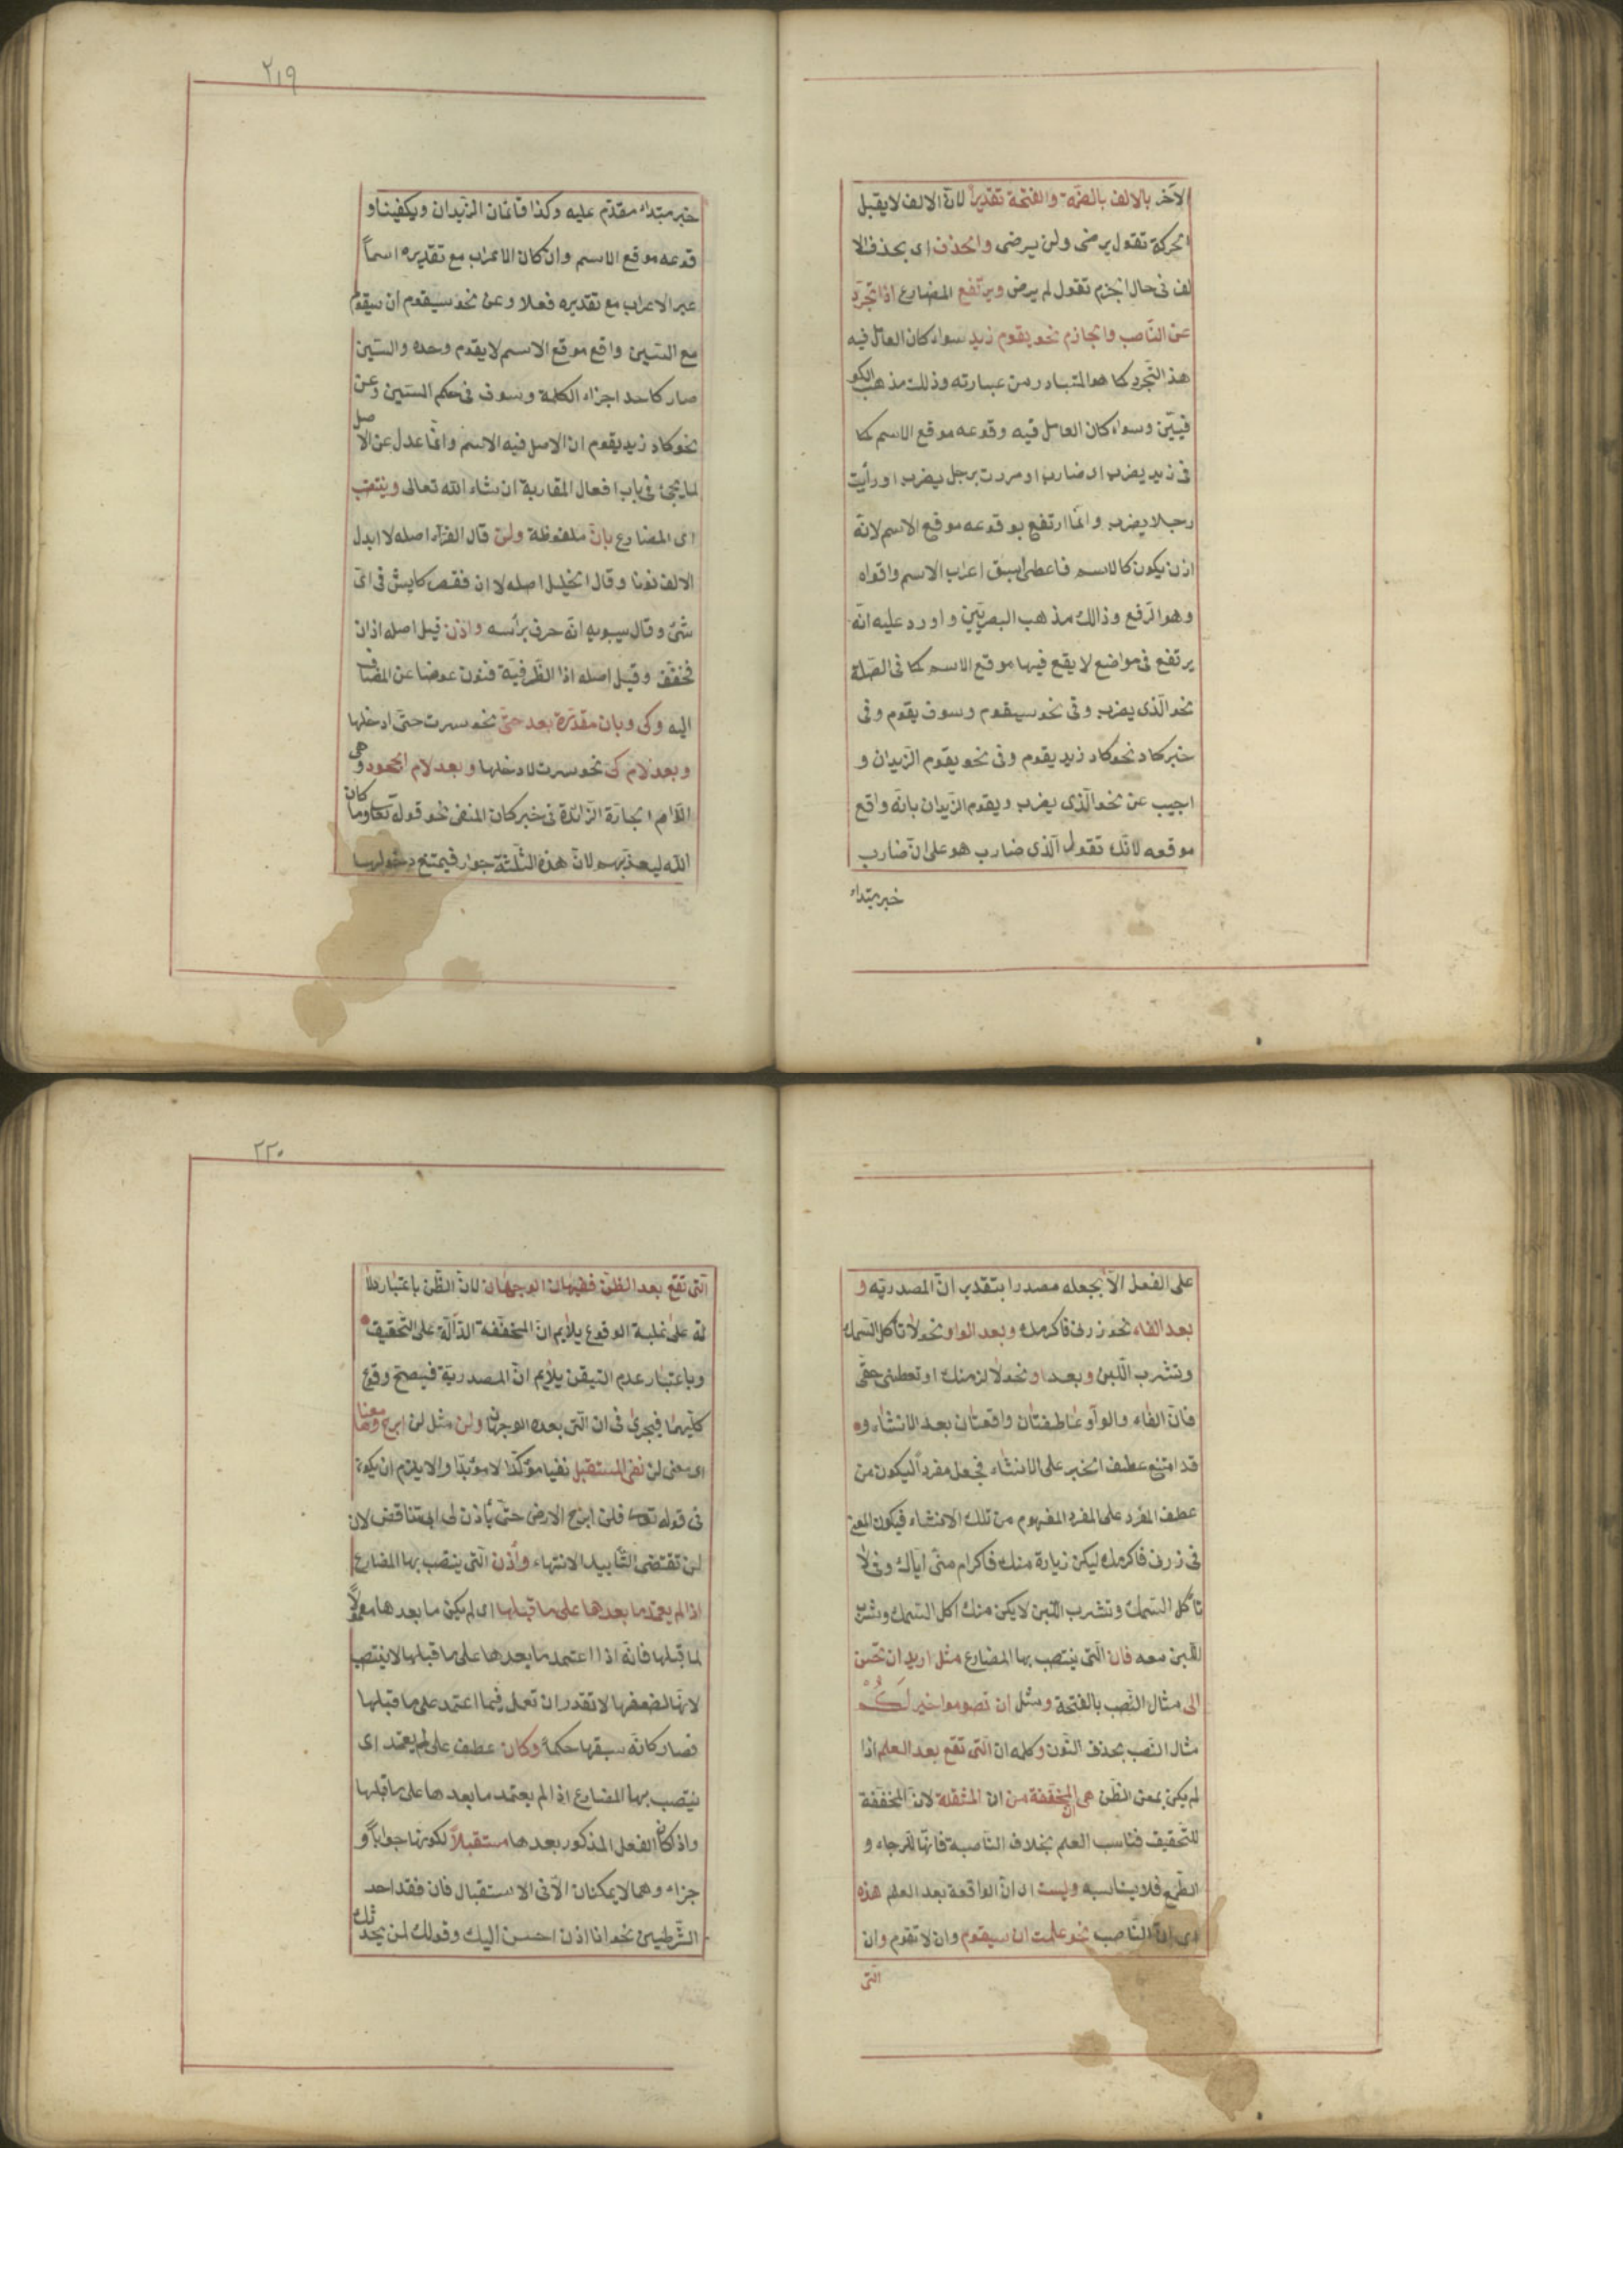 الآخر بالالف بالضمة والفتحة تقديرا لانّ الالف لا يقبل
الحركة تقول يرضى ولن يرضى والحذف اى بحذف الا
لف فى حال الجزم تقول لم يرض ويرتفع المضارع اذا تجرّد
عن النّاصب والجازم نحو يقوم زيد سواء كان العامل فيه
هذ التجرد كما هو المتبادر من عبارته وذلك مذهب الكو
فيّين وسواء كان العامل فيه وقوعه موقع الاسم كما
فى زيد يضرب اى ضارب او مررت برجل يضرب او رأيت
رجلا يضرب وانّما ارتفع بوقوعه موقع الاسم لانّه
اذن يكون كالاسم فاعطى اسبق اعراب الاسم واقواه
وهو الرّفع وذالك مذهب البصريّين واورد عليه انّه
يرتفع فى مواضع لا يقع فيها موقع الاسم كما فى الصّلة
نحو الّذى يضرب وفى نحو سيقوم وسوف يقوم وفى
خبر كاد نحو كاد زيد يقوم وفى نحو يقوم الزّيدان و
اجيب عن نحو الّذى يضرب ويقوم الزّيدان بانّه واقع
موقعه لانّك تقول الّذى ضارب هو على انّ ضارب
خبر مبتداء
٢١٩
خبر مبتداء مقدّم عليه وكذا قائمان الزّيدان ويكفينا و
قوعه موقع الاسم وان كان الاعراب مع تقديره اسماً
غير الاعراب مع تقديره فعلا وعن نحو سيقوم ان سيقوم
مع السّين واقع موقع الاسم لا يقوم وحده والسّين
صار كاحد اجزاء الكلمة وسوف فى حكم السّين وعن
نحو كاد زيد يقوم ان الاصل فيه الاسم وانّما عدل عن الاصل
لما يجئ فى باب افعال المقاربة ان شاء الله تعالى وينتصب
اى المضارع بان ملفوظة ولن قال الفرّاء اصله لا ابدل
الالف نونا وقال الخليل اصله لا ان فقصر كايش فى اىّ
شئ وقال سيبويه انّه حرف برأسه واذن قيل اصله اذ ان
فخفّف وقيل اصله اذا الظّرفيّة فنوّن عوضا عن المضاف
اليه وكى وبان مقدّرة بعد حتّى نحو سرت حتّى ادخلها
وبعد لام كى نحو سرت لادخلها وبعد لام الجحود وهى
اللّام الجارّة الزّائدة فى خبر كان المنفى نحو قوله تعا وما كان
الله ليعذّبهم لانّ هذه الثّلثة جوار فيمتنع دخولها
على الفعل الّا بجعله مصدرا بتقدير ان المصدريّه و
بعد الفاء نحو زرنى فاكرمك وبعد الواو نحو لا تأكل السّمك
وتشرب اللّبن وبعد او نحو لالزمنك او تعطينى حقّى
فانّ الفاء والواو عاطفتان واقعتان بعد الانشاء و
قد امتنع عطف الخبر على الانشاء فجعل مفرداً ليكون من
عطف المفرد على المفرد المفهوم من تلك الانشاء فيكون المعنى
فى زرنى فاكرمك ليكن زيارة منك فاكرام منّى ايّاك وفى لا
تأكل السّمك وتشرب اللّبن لا يكن منك اكل السّمك وشرب
اللّبن معه فان الّتى ينتصب بها المضارع مثل اريد ان تحسن
الى مثال النّصب بالفتحة ومثل ان تصوموا خير لَكُمْ
مثال النّصب بحذف النّون وكلمه ان الّتى تقع بعد العلم اذا
لم يكن بمعنى الظّن هى المخفّفة من ان المثقلة لانّ المخفّفة
للتّحقيق فناسب العلم بخلاف النّاصبة فانّها للرّجاء و
الطّمع فلا يناسبه وليست اى ان الواقعة بعد العلم هذه
اى ان النّاصب نحو علمت ان سيقوم وان لا تقوم وان
الّتى
٢٢٠
الّتى تقع بعد الظّنّ ففيها الوجهان لانّ الظّن باعتبار دلا
لته على غلبة الوقوع يلايم ان المخفّفة الدّالّة على التّحقيق
وباعتبار عدم التيقّن يلايم ان المصدريّة فيصحّ وقوع
كليهما فيجرى فى ان الّتى بعده الوجهان ولن مثل لن ابرح ومعناها
اى معنى لن نفى المستقبل نفيا مؤكّدا لا مؤبّدا والا يلزم ان يكون
فى قوله تعا فلن ابرح الارض حتّى يأذن لى ابى تناقض لان
لن تقتضى التّأبيد الانتهاء واذن الّتى ينتصب بها المضارع
اذا لم يعتمد ما بعدها على ما قبلها اى لم يكن ما بعدها معمولاً
لما قبلها فانّه اذا اعتمد ما بعدها على ما قبلها لا ينتصب
لانّها لضعفها لا تقدر ان تعمل فيما اعتمد على ما قبلها
فصار كانّه سبقها حكماً وكان عطف على لم يعتمد اى
ينتصب بها المضارع اذا لم يعتمد ما بعدها على ما قبلها
واذا كان الفعل المذكور بعدها مستقبلاً لكونها جواباً و
جزاء وهما لا يمكنان الّا فى الاستقبال فان فقد احد
الشّرطين نحو انا اذن احسن اليك وقولك لمن يحدّثك